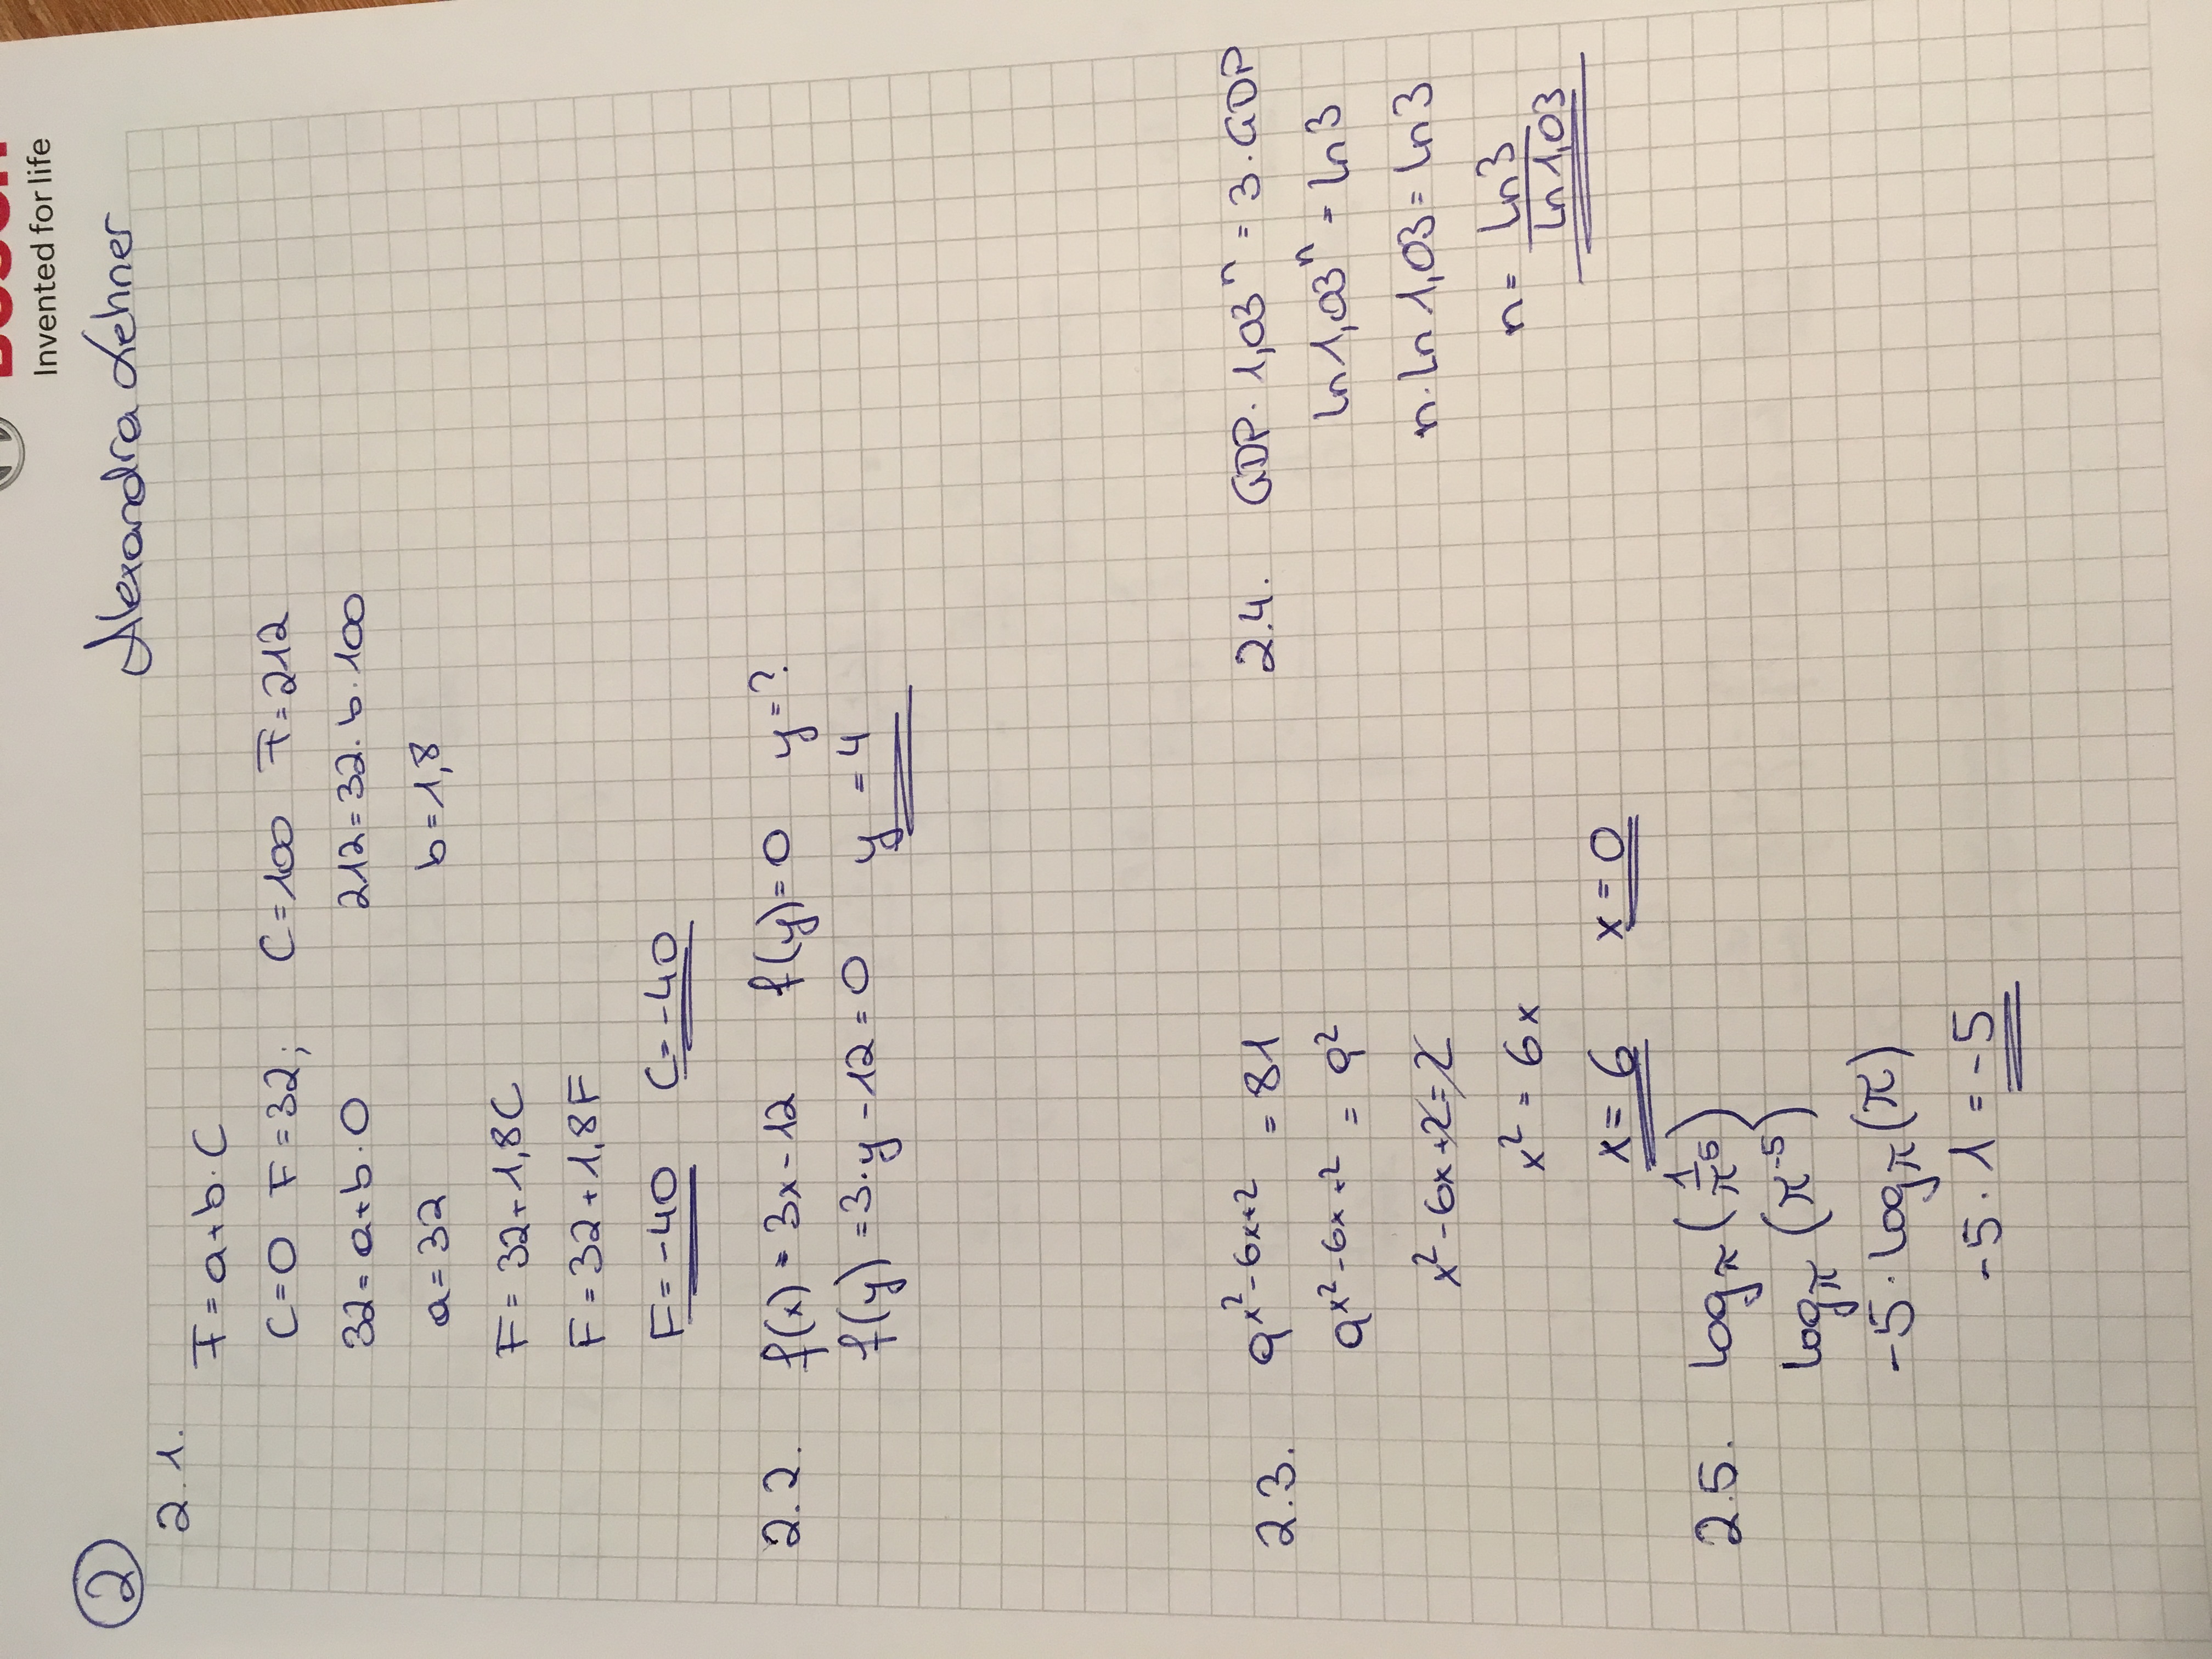 BOSCH
Invented for life
2
Alexandra Lehner
2.1.
F = a + b · C
C = 0 F = 32; C = 100 F = 212
32 = a + b · 0 212 = 32 · b · 100
a = 32 b = 1,8
F = 32 + 1,8C
F = 32 + 1,8F
F = -40 C = -40
2.2. f(x) = 3x - 12 f(y) = 0 y = ?
f(y) = 3 · y - 12 = 0 y = 4
2.3. 9^(x² - 6x + 2) = 81
9^(x² - 6x + 2) = 9²
x² - 6x + 2 = 2
x² = 6x
x = 6 x = 0
2.4. GDP · 1,03ⁿ = 3 · GDP
ln 1,03ⁿ = ln 3
n · ln 1,03 = ln 3
n = ln 3 / ln 1,03
2.5. log_π (1/π⁵)
log_π (π⁻⁵)
-5 · log_π (π)
-5 · 1 = -5